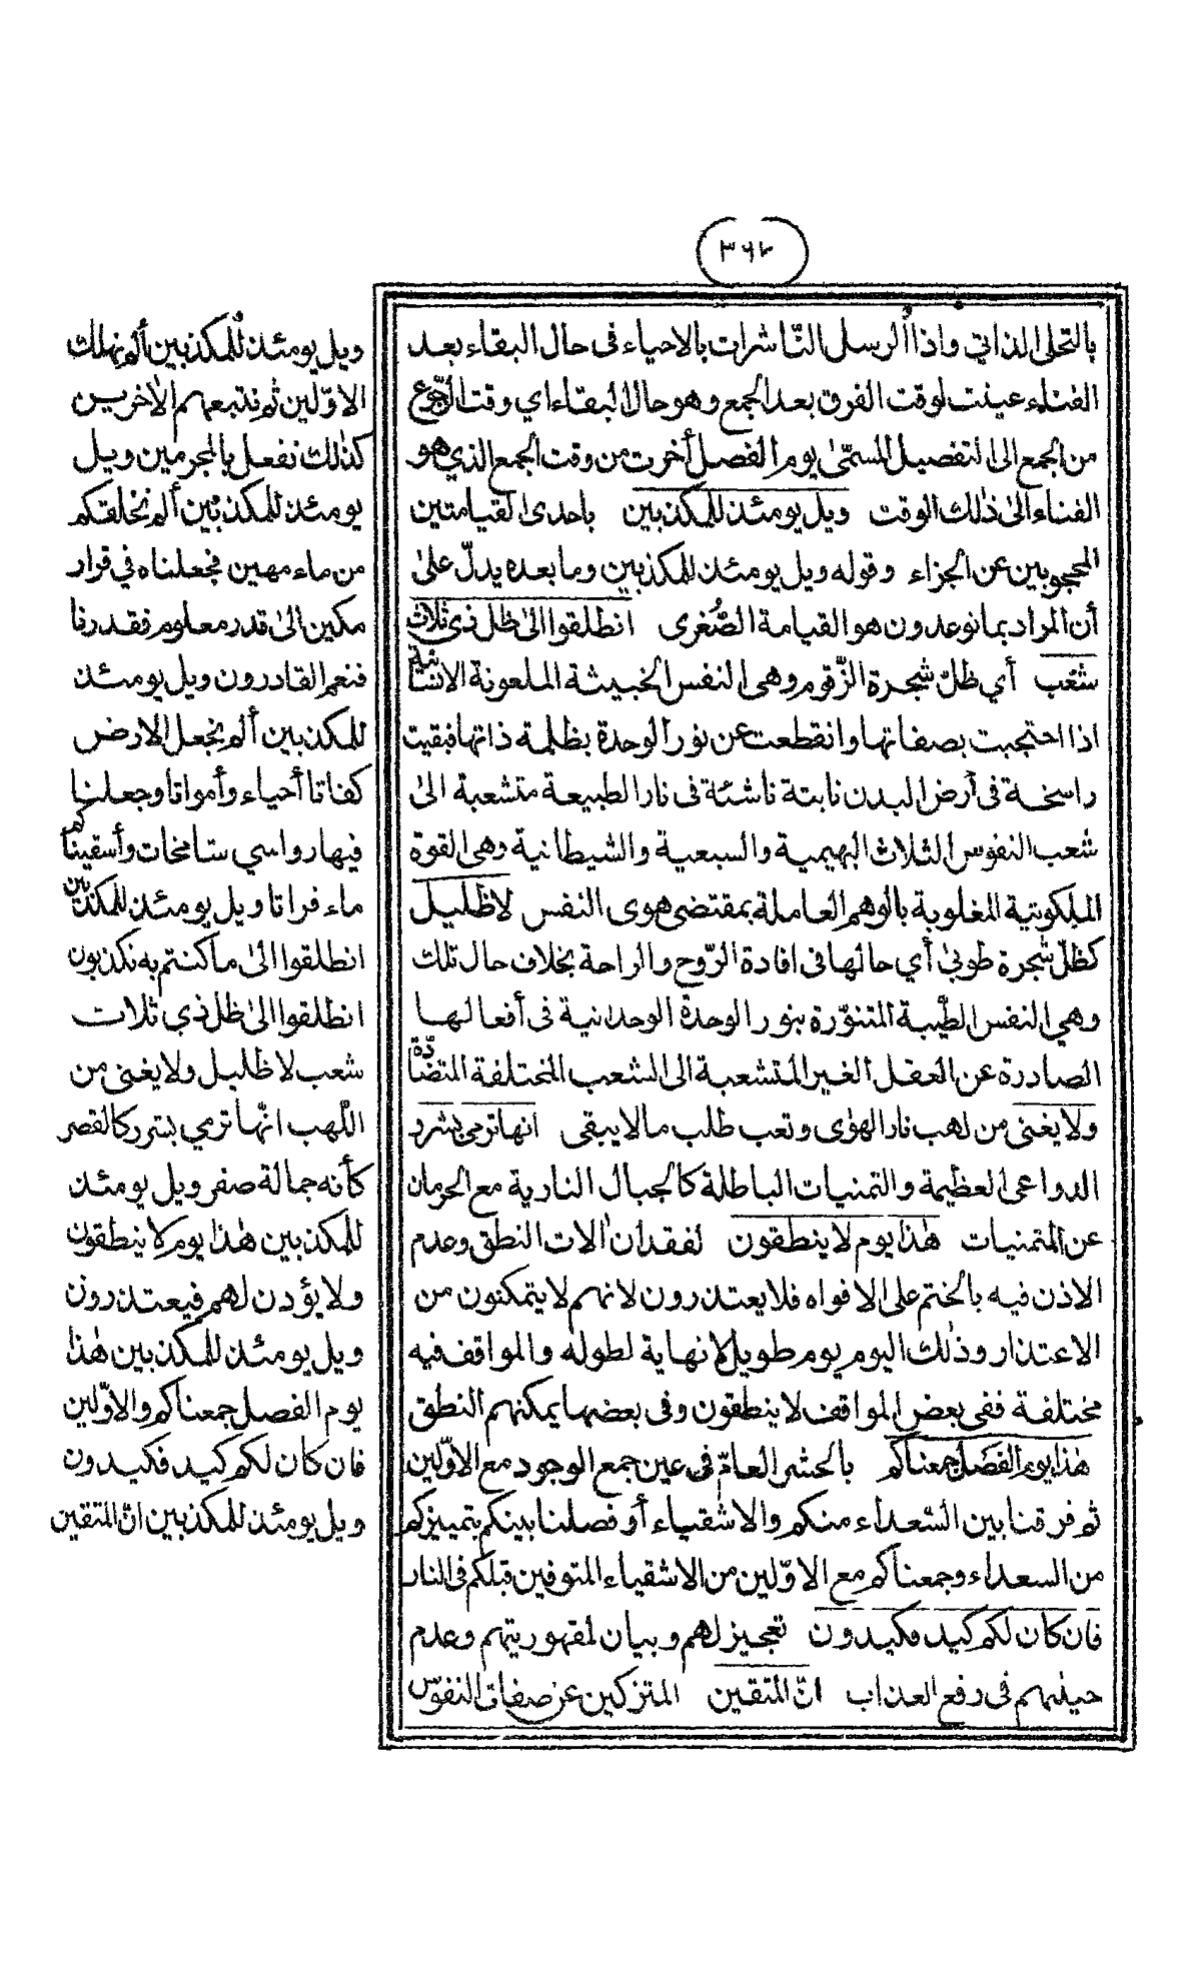 ٣٦٢
بالتجلى الذاتي واذا الرسل الناشرات بالاحياء فى حال البقاء بعد
الفناء عينت لوقت الفرق بعد الجمع وهو حال البقاء اي وقت الرجوع
من الجمع الى التفصيل المسمّى يوم الفصل أخرت من وقت الجمع الذي هو
الفناء الى ذلك الوقت ويل يومئذ للمكذبين باحدى القيامتين
المحجوبين عن الجزاء وقوله ويل يومئذ للمكذبين وما بعده يدلّ على
أن المراد بما توعدون هو القيامة الصّغرى انطلقوا الى ظل ذى ثلاث
شعب أي ظلّ شجرة الزّقوم وهى النفس الخبيثة الملعونة الانسانية
اذا احتجبت بصفاتها وانقطعت عن نور الوحدة بظلمة ذاتها فبقيت
راسخة فى أرض البدن نابتة ناشئة فى نار الطبيعة متشعبة الى
شعب النفوس الثلاث البهيمية والسبعية والشيطانية وهى القوة
الملكوتية المغلوبة بالوهم العاملة بمقتضى هوى النفس لا ظليل
كظلّ شجرة طوبى أي حالها فى افادة الرّوح والراحة بخلاف حال تلك
وهي النفس الطيّبة المتنوّرة بنور الوحدة الوحدانية فى أفعالها
الصادرة عن العقل الغير المتشعبة الى الشعب المختلفة المتضادّة
ولا يغنى من لهب نار الهوى وتعب طلب ما لا يبقى انها ترمى بشرر
الدواعى العظيمة والتمنيات الباطلة كالجبال النارية مع الحرمان
عن المتمنيات هذا يوم لا ينطقون لفقدان آلات النطق وعدم
الاذن فيه بالختم على الافواه فلا يعتذرون لانهم لا يتمكنون من
الاعتذار وذلك اليوم يوم طويل لا نهاية لطوله والمواقف فيه
مختلفة ففى بعض المواقف لا ينطقون وفى بعضها يمكنهم النطق
هذا يوم الفصل جمعناكم بالحشر العامّ فى عين جمع الوجود مع الاوّلين
ثم فرقنا بين السّعداء منكم والاشقياء أو فصلنا بينكم بتمييزكم
من السعداء وجمعناكم مع الاوّلين من الاشقياء المتوفين قبلكم فى النار
فان كان لكم كيد فكيدون تعجيز لهم وبيان لمقهوريتهم وعدم
حيلتهم فى رفع العذاب انّ المتقين المتزكين عن صفات النفوس
ويل يومئذ للمكذبين ألم نهلك
الاوّلين ثم نتبعهم الآخرين
كذلك نفعل بالمجرمين ويل
يومئذ للمكذبين ألم نخلقكم
من ماء مهين فجعلناه في قرار
مكين الى قدر معلوم فقدرنا
فنعم القادرون ويل يومئذ
للمكذبين ألم نجعل الارض
كفاتا أحياء وأمواتا وجعلنا
فيها رواسي شامخات وأسقيناكم
ماء فراتا ويل يومئذ للمكذبين
انطلقوا الى ما كنتم به تكذبون
انطلقوا الى ظل ذي ثلاث
شعب لا ظليل ولا يغنى من
اللّهب انّها ترمي بشرر كالقصر
كأنه جمالة صفر ويل يومئذ
للمكذبين هذا يوم لا ينطقون
ولا يؤذن لهم فيعتذرون
ويل يومئذ للمكذبين هذا
يوم الفصل جمعناكم والاوّلين
فان كان لكم كيد فكيدون
ويل يومئذ للمكذبين انّ المتقين